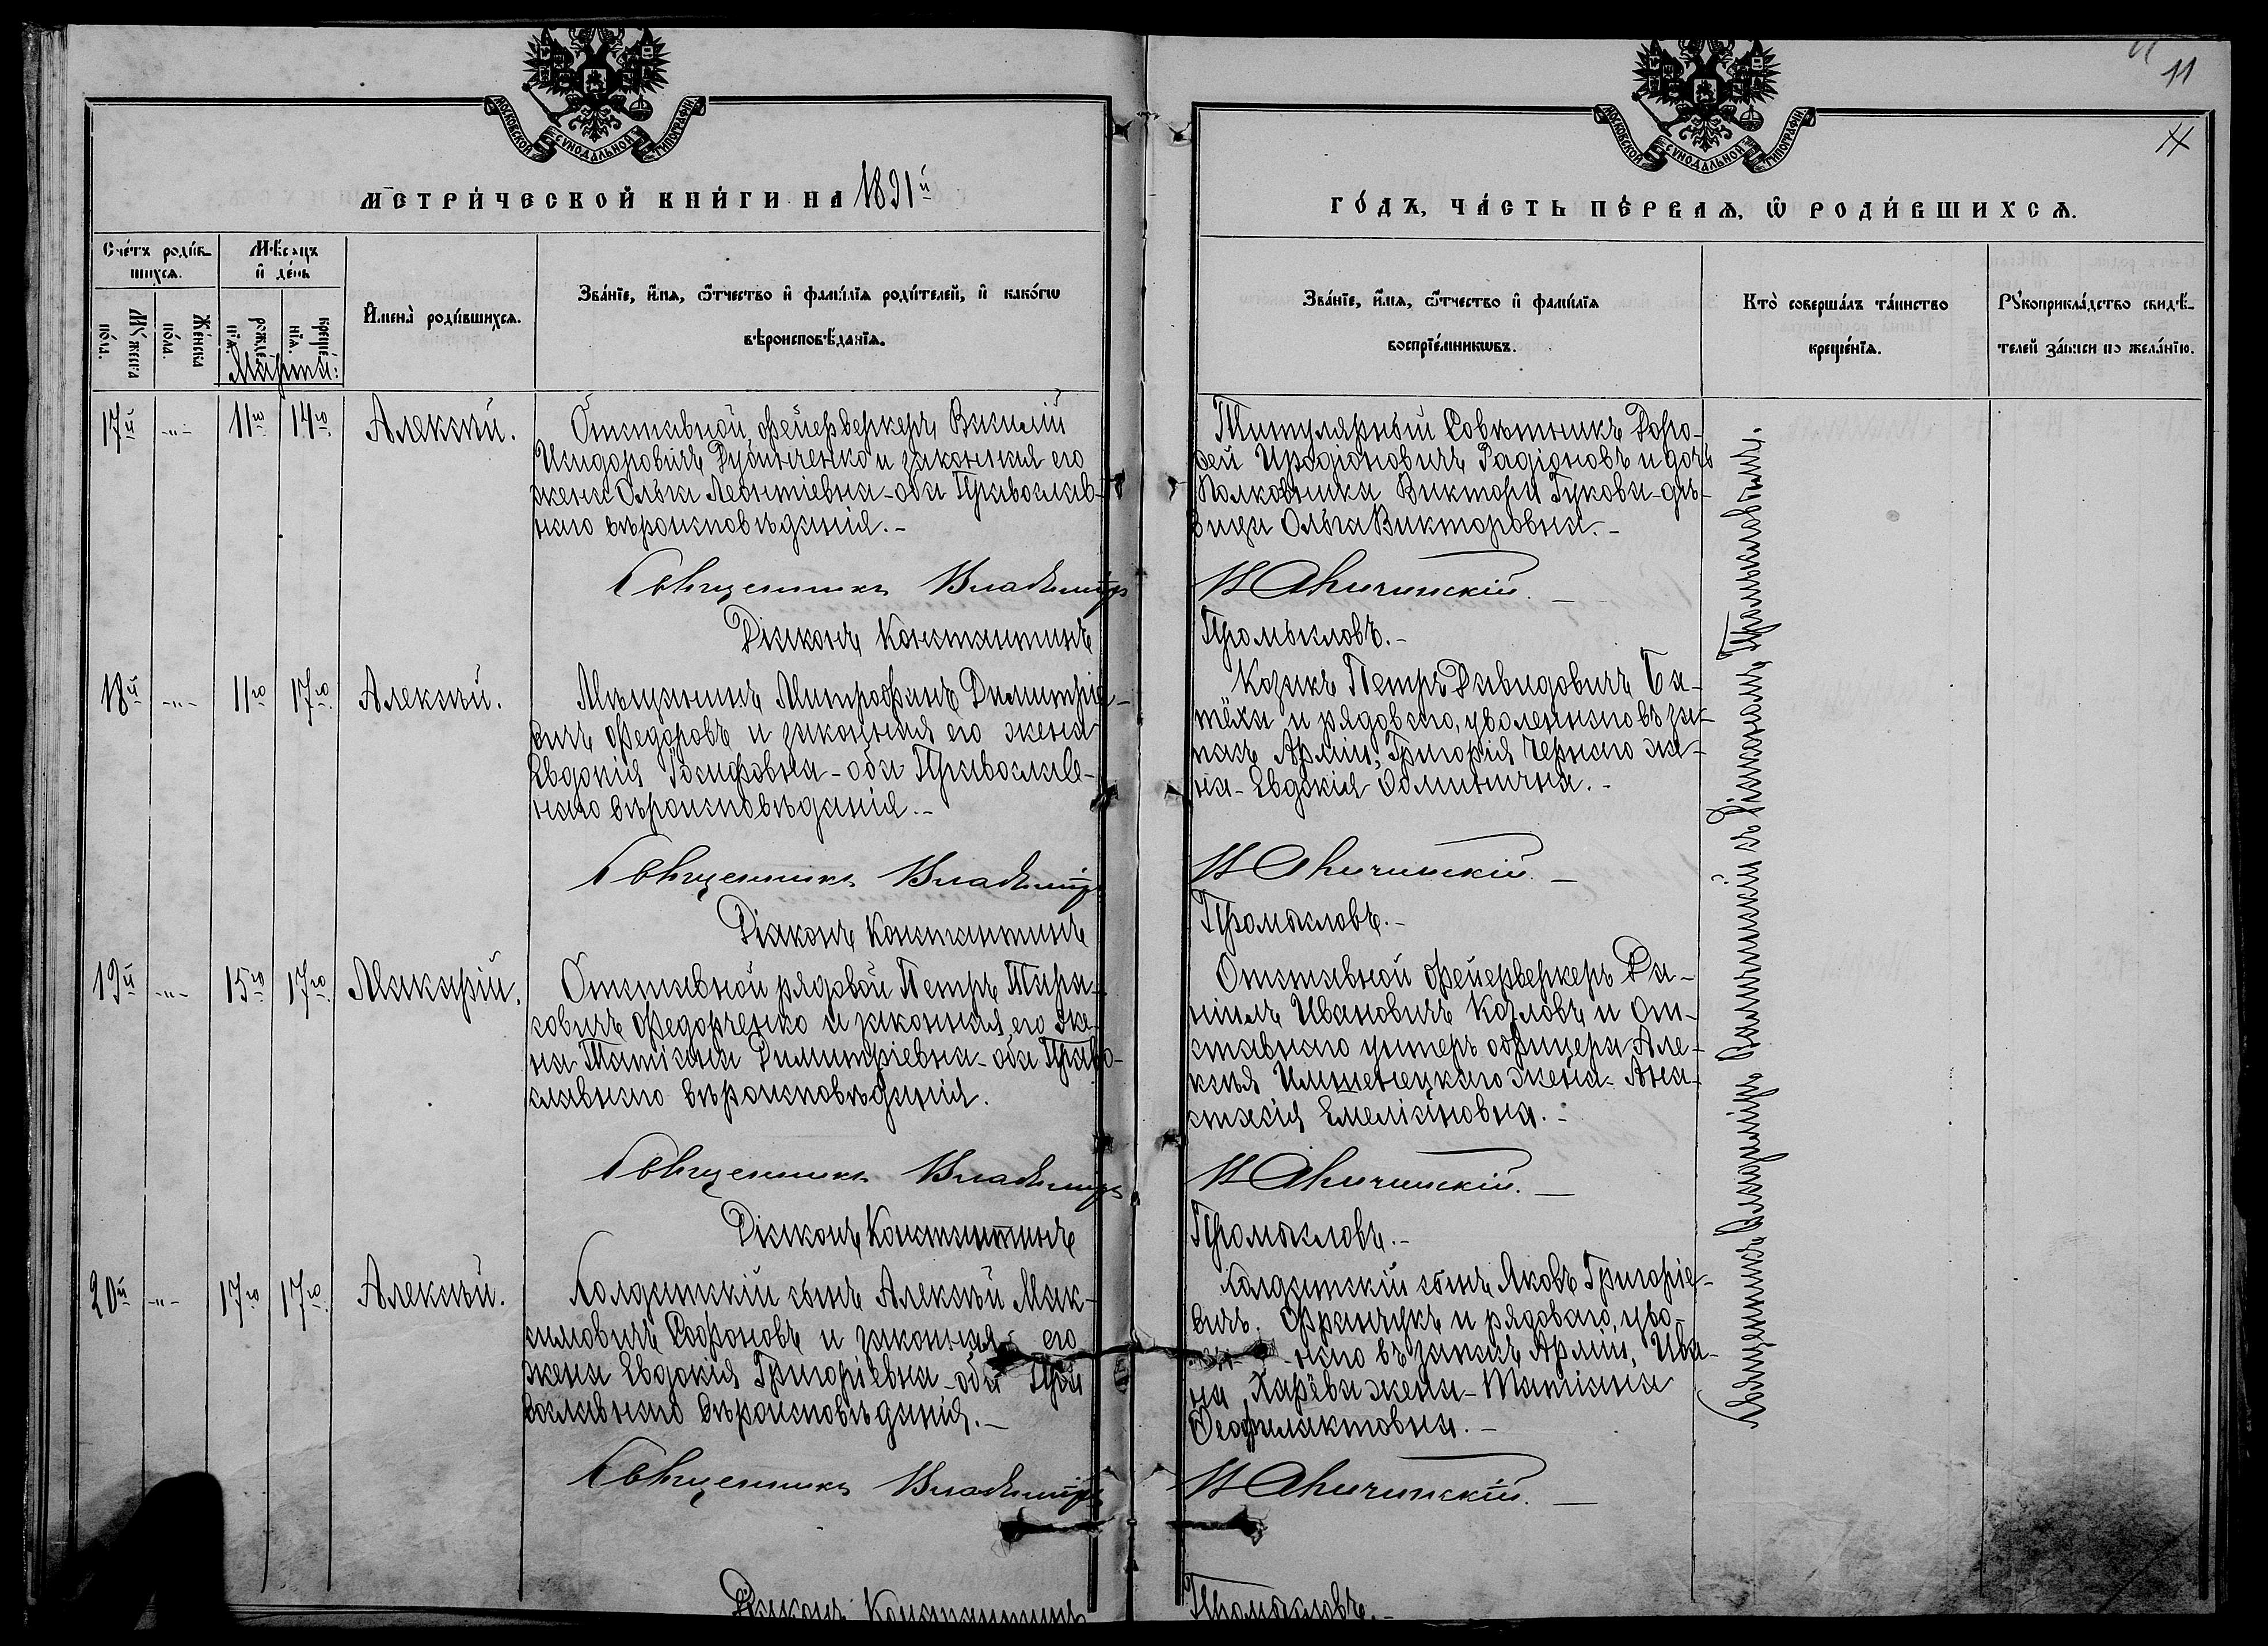 МОСКОВСКОЙ СѴНОДАЛЬНОЙ ТИПОГРАФІИ
МЕТРИ́ЧЕСКОЙ КНИ́ГИ НА 1891й
Сче́тъ роди́в-
шихся.
Мѣсяцъ
и де́нь
Имена̀ роди́вшихся.
Зва́нїе, и́мя, ѻ҆́тчество и фами́лїя роди́телей, и како́гѡ
вѣроисповѣ́данїя.
Мꙋ́жеска
по́ла.
Же́нска
по́ла.
рожде́-
нїя.
креще́-
нїя.
Марта:
17й
-"-
11го
14го
Алексѣй.
Отставной фейерверкеръ Василій
Исидоровичъ Рубинченко и законная его
жена Ольга Леонтіевна-оба Православ-
наго вѣроисповѣданія.-
Священникъ Владиміръ
Діаконъ Константинъ
18й
-"-
11го
17го
Алексѣй.
Мѣщанинъ Митрофанъ Димитріе-
вичъ Федоровъ и законная его жена
Евдокія Іосифовна-оба Православ-
наго вѣроисповѣданія.-
Священникъ Владиміръ
Діаконъ Константинъ
19й
-"-
15го
17го
Макарій.
Отставной рядовой Петръ Тара-
совичъ Федорченко и законная его же-
на Татіана Димитріевна-оба Право-
славнаго вѣроисповѣданія.
Священникъ Владиміръ
Діаконъ Константинъ
20й
-"-
17го
17го
Алексѣй.
Солдатскій сынъ Алексѣй Мак-
симовичъ Софоновъ и законная его
жена Евдокія Григоріевна-оба Пра
вославнаго вѣроисповѣданія.-
Священникъ Владиміръ
Діаконъ Константинъ
11
МОСКОВСКОЙ СѴНОДАЛЬНОЙ ТИПОГРАФІИ
ГО́ДЪ, ЧА́СТЬ ПЕ́РВАЯ, Ѡ РОДИ́ВШИХСЯ.
Зва́нїе, и́мя, ѻ҆́тчество и фами́лїя
воспрїе́мникѡвъ.
Кто̀ соверша́лъ та́инство
креще́нїя.
Рꙋкоприкла́дство свидѣ́-
телей за́писи по жела́нїю.
Титулярный Совѣтникъ Доро-
фей Иродіоновичъ Радіоновъ и дочь
Полковника Виктора Гукова-дѣ-
вица Ольга Викторовна.-
Промысловъ.-
Казакъ Петръ Давидовичъ Ба-
тёха и рядоваго, уволеннаго въ за-
пасъ Арміи, Григорія Чернаго же-
на-Евдокія Ѳоминична.-
Промысловъ.-
Отставной фейерверкеръ Да-
ніилъ Ивановичъ Козловъ и от-
ставнаго унтеръ офицера Але-
ксѣя жена-Ана-
стасія Емеліановна.-
Промысловъ.-
Солдатскій сынъ Яковъ Григоріе-
вичъ Францукъ и рядоваго, уво-
наго въ запасъ Арміи, Ива-
на Харёва жена-Татіана
Ѳеофилактовна.-
Промысловъ.-
Священникъ Владиміръ съ Діакономъ Промысловымъ.